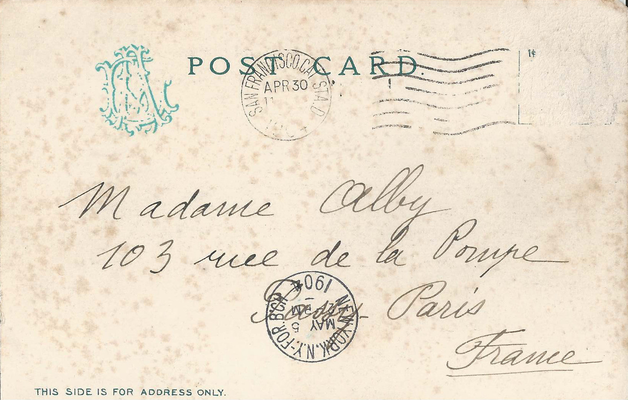 POST CARD
SAN FRANCISCO, CAL. STA. D
APR 30
Madame Alby
103 rue de la Pompe
Passy Paris
France
NEW YORK, N.Y.-FOR'GN
MAY 5
1904
THIS SIDE IS FOR ADDRESS ONLY.